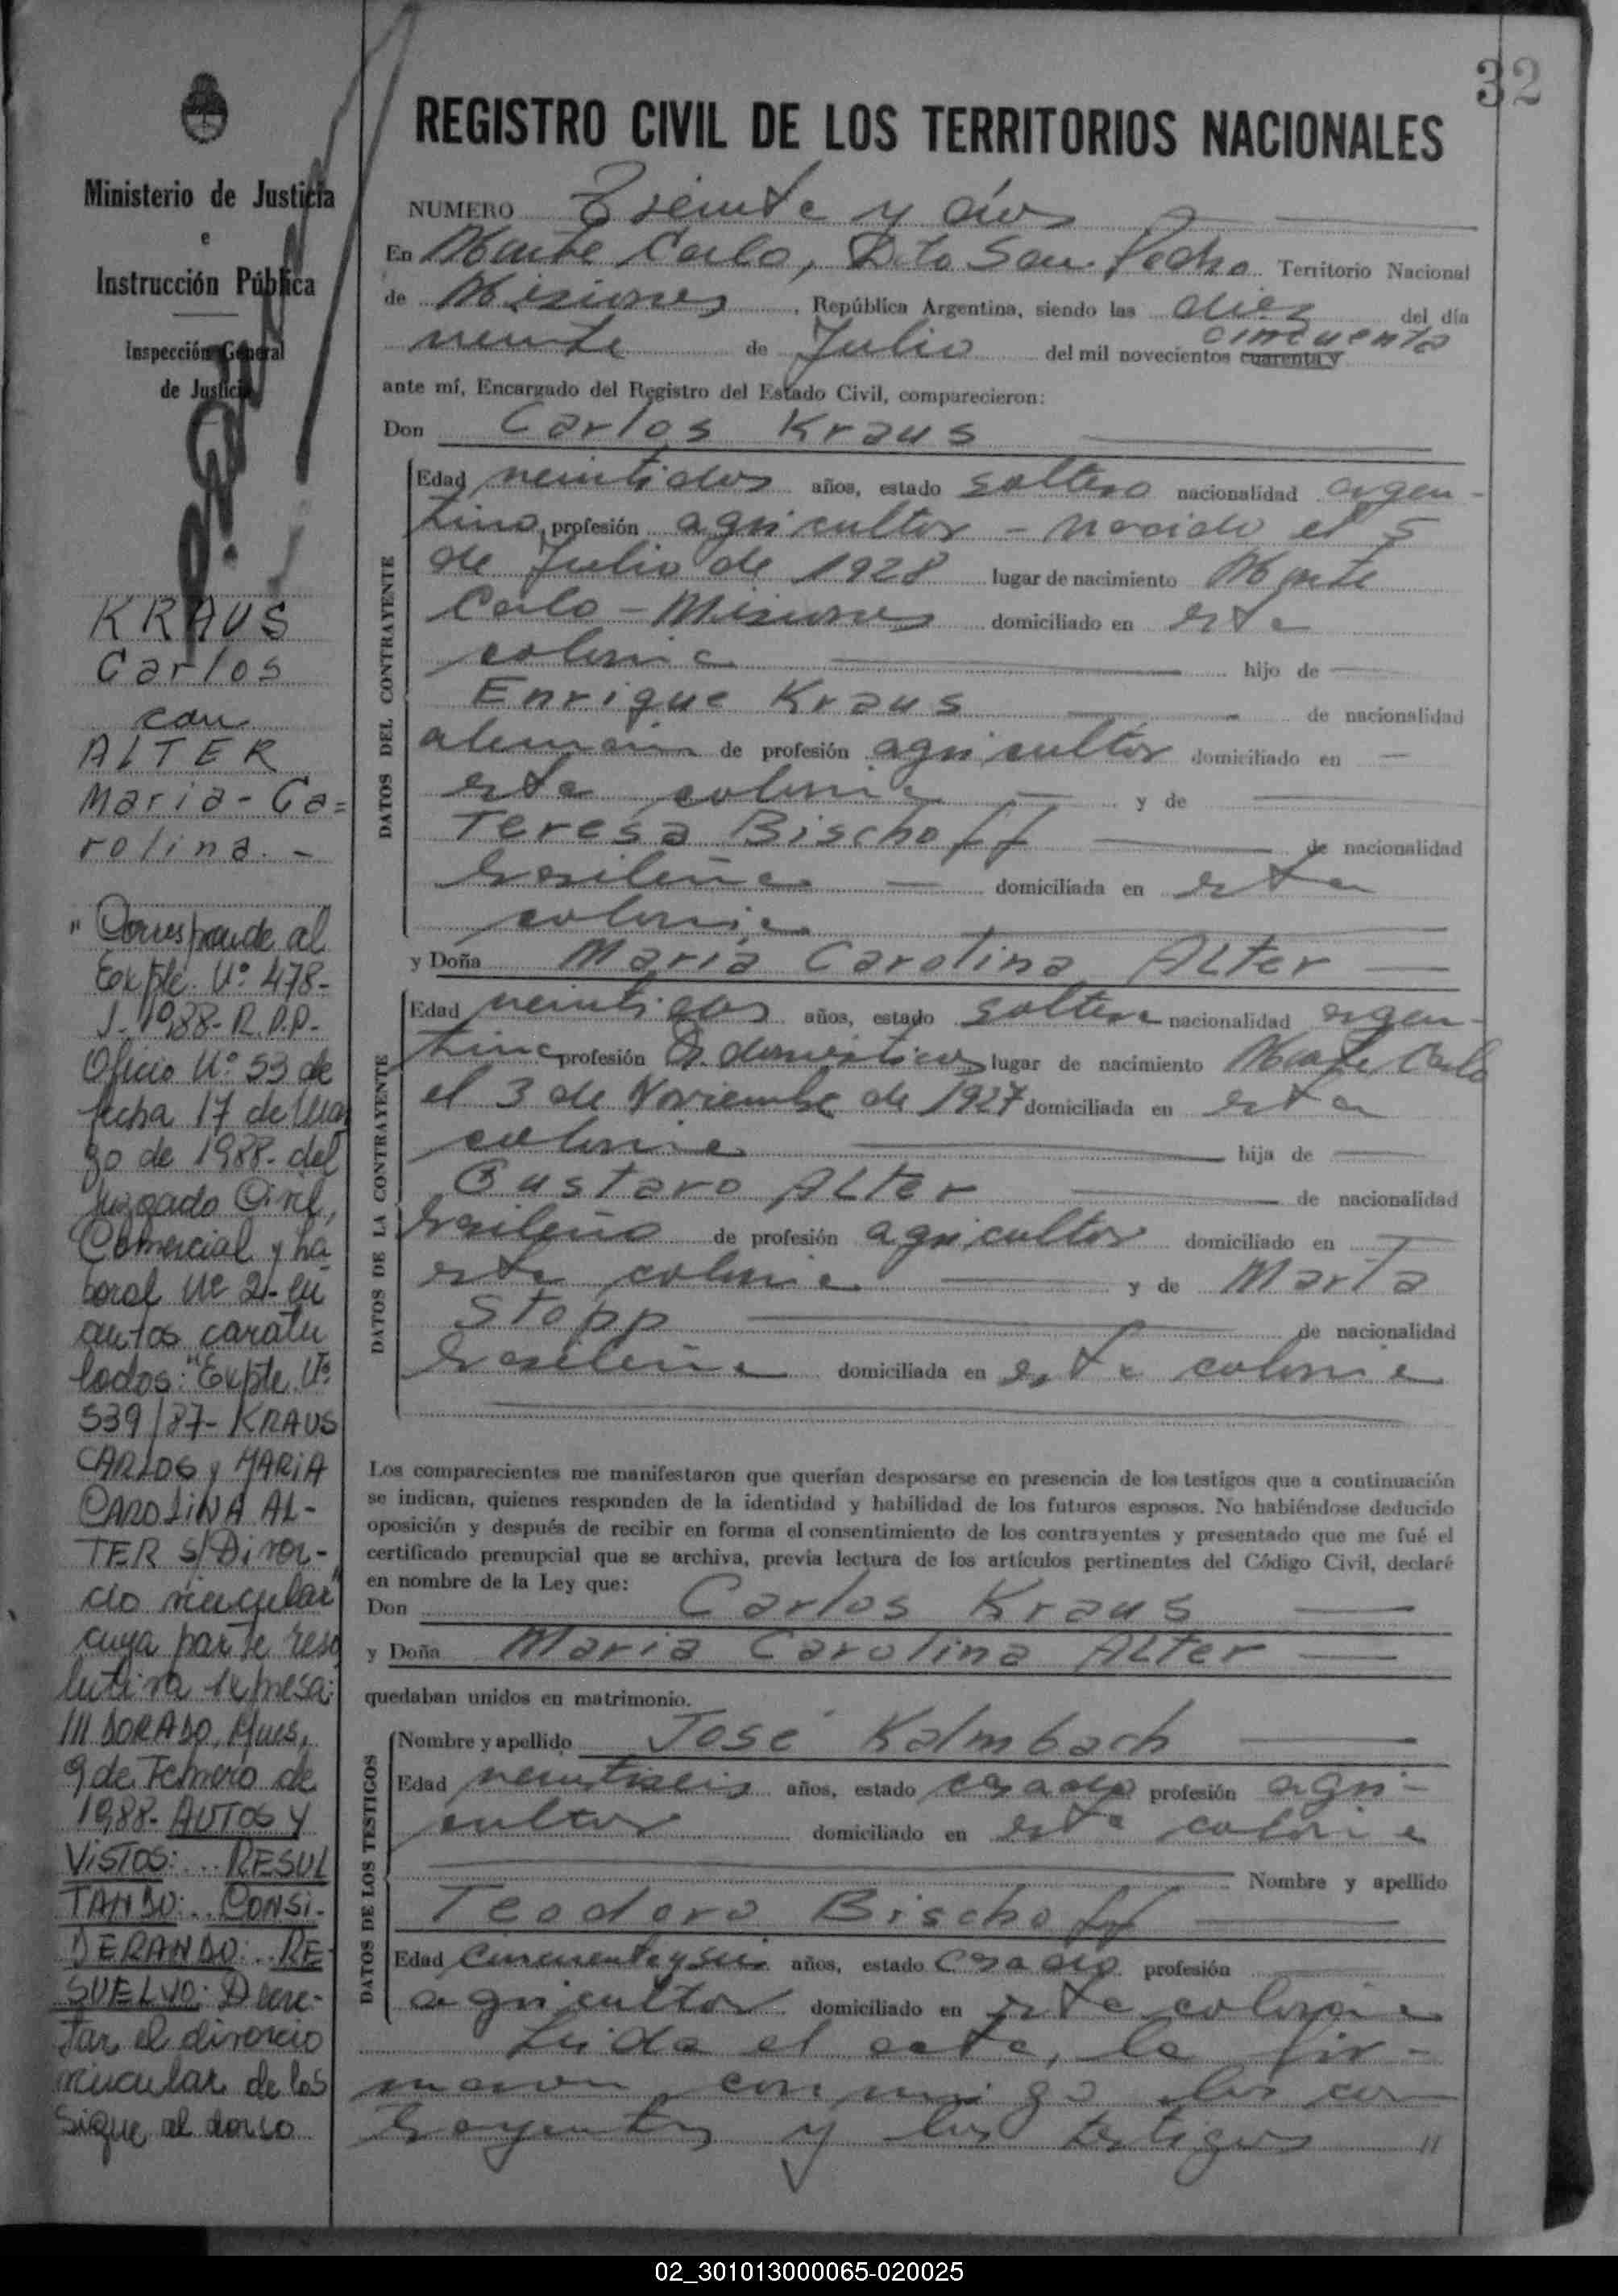 32
Ministerio de Justicia
e
Instrucción Pública
Inspección General
de Justicia
KRAUS
Carlos
con
ALTER
Maria-Ca=
rolina.-
"Corresponde al
Expte. Nº 478-
J-1988-R.P.P.-
Oficio Nº 53 de
fecha 17 de Mar
zo de 1988- del
Juzgado Civil,
Comercial y La
boral Nº 2- en
autos caratu
lados: "Expte. Nº
539/87- KRAUS
CARLOS y MARIA
CAROLINA AL-
TER s/Divor-
cio vincular"
cuya parte reso
lutiva expresa:
/// DORADO, Mnes,
9 de Febrero de
1988- AUTOS Y
VISTOS:... RESUL
TANDO:.. CONSI-
DERANDO:.. RE-
SUELVO: Decre-
tar el divorcio
vincular de los
Sigue al dorso
REGISTRO CIVIL DE LOS TERRITORIOS NACIONALES
NUMERO Treinta y dos
En Monte Carlo, Dto San Pedro Territorio Nacional
de Misiones, República Argentina, siendo las diez del día
veinte de Julio del mil novecientos cuarenta y cincuenta
ante mí, Encargado del Registro del Estado Civil, comparecieron:
Don Carlos Kraus
DATOS DEL CONTRAYENTE
Edad veintidos años, estado soltero nacionalidad argen-
tino, profesión agricultor - nacido el 5
de Julio de 1928 lugar de nacimiento Monte
Carlo - Misiones domiciliado en esta
colonia hijo de
Enrique Kraus de nacionalidad
alemán de profesión agricultor domiciliado en
esta colonia y de
Teresa Bischoff de nacionalidad
brasileña domiciliada en esta
colonia
y Doña María Carolina Alter
DATOS DE LA CONTRAYENTE
Edad veintidos años, estado soltera nacionalidad argen-
tina profesión Q. domésticos lugar de nacimiento Monte Carlo
el 3 de Noviembre de 1927 domiciliada en esta
colonia hija de
Gustavo Alter de nacionalidad
brasileño de profesión agricultor domiciliado en
esta colonia y de Marta
Stopp de nacionalidad
brasileña domiciliada en esta colonia
Los comparecientes me manifestaron que querían desposarse en presencia de los testigos que a continuación
se indican, quienes responden de la identidad y habilidad de los futuros esposos. No habiéndose deducido
oposición y después de recibir en forma el consentimiento de los contrayentes y presentado que me fué el
certificado prenupcial que se archiva, previa lectura de los artículos pertinentes del Código Civil, declaré
en nombre de la Ley que:
Don Carlos Kraus
y Doña Maria Carolina Alter
quedaban unidos en matrimonio.
DATOS DE LOS TESTIGOS
Nombre y apellido José Kalmbach
Edad veintiseis años, estado casado profesión agri-
cultor domiciliado en esta colonia
Nombre y apellido
Teodoro Bischoff
Edad cincuenta y seis años, estado casado profesión
agricultor domiciliado en esta colonia
Leída el acta, la fir-
maron conmigo los con
trayentes y los testigos //
02_301013000065-020025